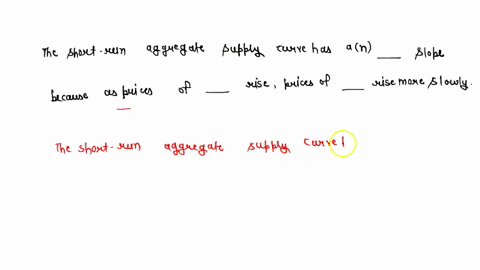 The short-run aggregate supply curve has a(n) ___ slope
because as prices of ___ rise, prices of ___ rise more slowly.
The short-run aggregate supply curve